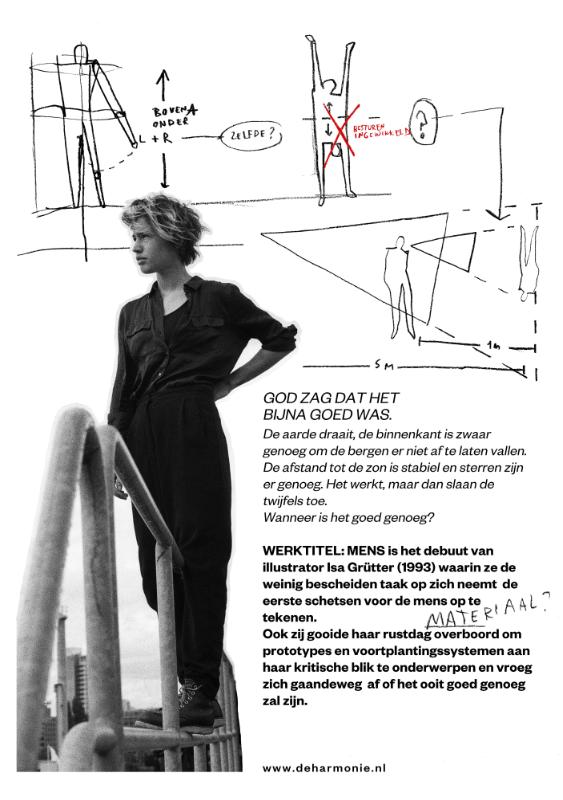 BOVEN
ONDER
L + R
ZELFDE?
BESTUREN
INGEWIKKELD
?
1m
5 M
GOD ZAG DAT HET
BIJNA GOED WAS.
De aarde draait, de binnenkant is zwaar
genoeg om de bergen er niet af te laten vallen.
De afstand tot de zon is stabiel en sterren zijn
er genoeg. Het werkt, maar dan slaan de
twijfels toe.
Wanneer is het goed genoeg?
WERKTITEL: MENS is het debuut van
illustrator Isa Grütter (1993) waarin ze de
weinig bescheiden taak op zich neemt de
eerste schetsen voor de mens op te
tekenen.
MATERIAAL?
Ook zij gooide haar rustdag overboord om
prototypes en voortplantingssystemen aan
haar kritische blik te onderwerpen en vroeg
zich gaandeweg af of het ooit goed genoeg
zal zijn.
www.deharmonie.nl